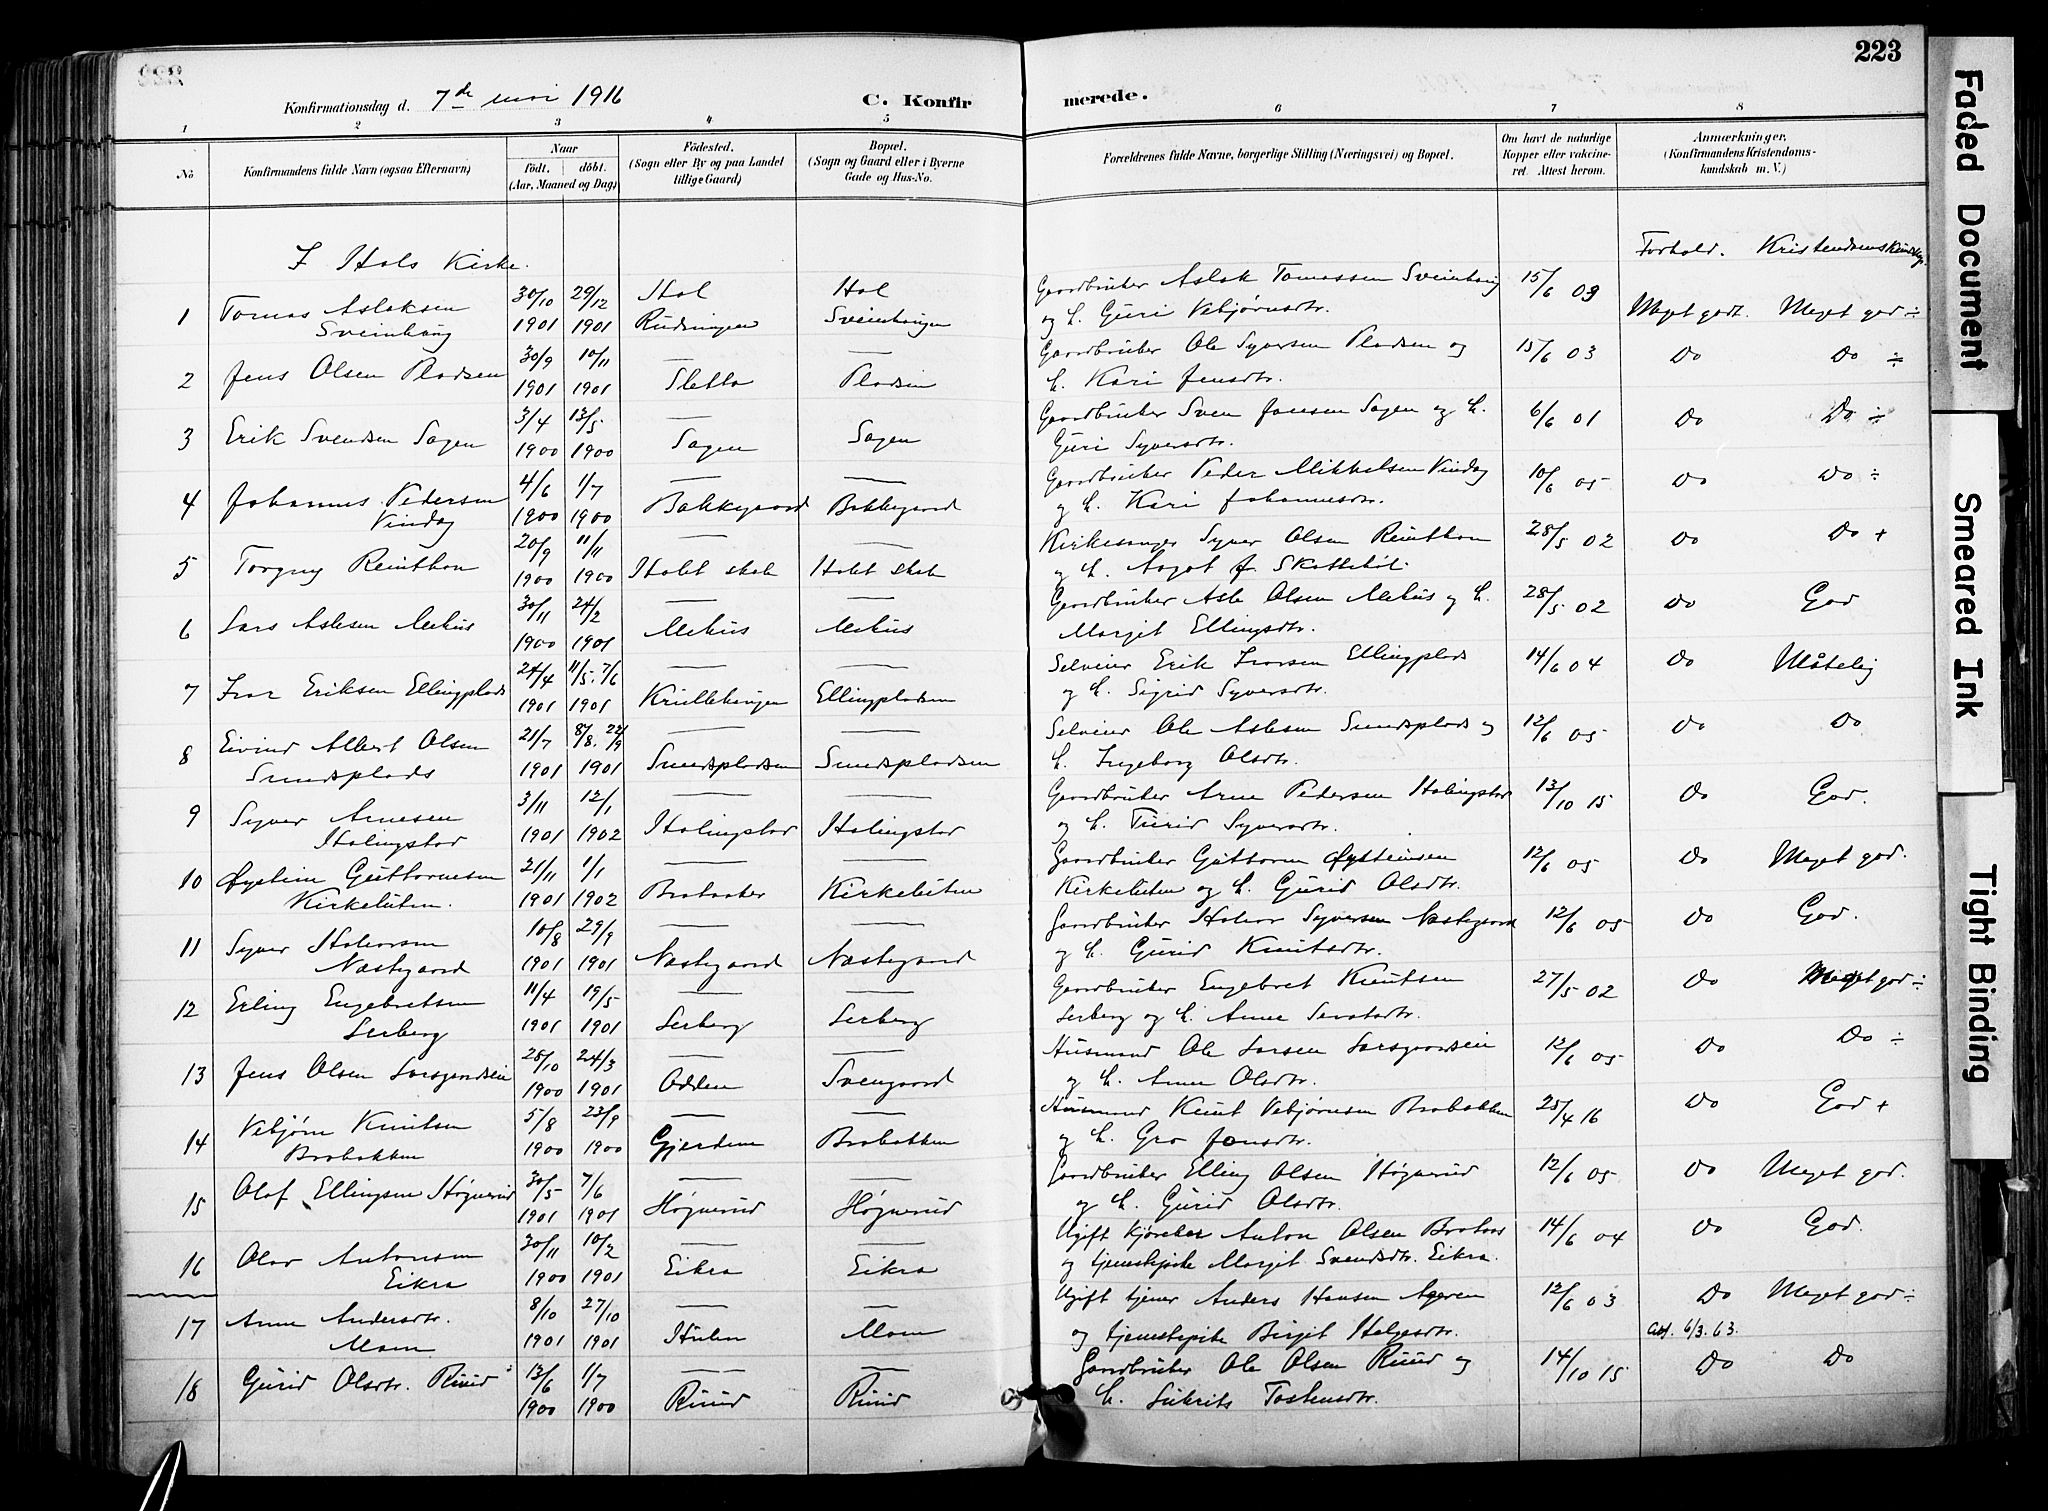 223
Konfirmationsdag d. 7de mai 1916
C. Konfirmerede.
1 2 3 4 5 6 7 8
No
Konfirmandens fulde Navn (ogsaa Efternavn)
Naar født. døbt. (Aar, Maaned og Dag)
Födested. (Sogn eller By og paa Landet tillige Gaard)
Bopæl. (Sogn og Gaard eller i Byerne Gade og Hus-No.
Forældrenes fulde Navne, borgerlige Stilling (Næringsvei) og Bopæl.
Om havt de naturlige Kopper eller vakcineret. Attest herom.
Anmærkninger, (Konfirmandens Kristendomskundskab m. V.)
I Hols Kirke.
Forhold. Kristendomskundsk.
1 Tomas Aslaksen Sveinhaug 30/10 1901 29/12 1901 Hol Rudningen Hol Sveinhaugen Gaardbruker Aslak Tomassen Sveinhaug og h. Guri Vebjørnsdtr. 15/6 03 Meget godt. Meget god ÷
2 Jens Olsen Pladsen 30/9 1901 10/11 1901 — Sletto — Pladsen Gaardbruker Ole Syversen Pladsen og h. Kari Jensdtr. 15/6 03 Do Do ÷
3 Erik Svendsen Sagen 3/4 1900 13/5 1900 — Sagen Sagen Gaardbruker Sven Jansen Sagen og h. Guri Syversdtr. 6/6 01 Do Do ÷
4 Johannes Pedersen Vindeg 4/6 1900 1/7 1900 — Bakkegaard — Bakkegaard Gaardbruker Peder Mikkelsen Vindeg og h. Kari Johannesdtr. 10/6 05 Do Do ÷
5 Torgny Reinthon 20/9 1900 11/11 1900 — Holet skole — Holet skole Kirkesanger Syver Olsen Reinthon og h. Aagot f. Skattebøl. 28/5 02 Do Do +
6 Lars Aslesen Mehus 30/11 1900 24/2 1901 — Mehus — Mehus Gaardbruker Asle Olsen Mehus og h. Margit Ellingsdtr. 28/5 02 Do God
7 Ivar Eriksen Ellingplads 24/4 1901 11/5. 7/6 1901 — Krullehaugen — Ellingpladsen Selveier Erik Ivarsen Ellingplads og h. Sigrid Syversdtr. 14/6 04 Do Måtelig
8 Eivind Albert Olsen Sundsplads 21/7 1901 8/8. 22/9 1901 — Sundspladsen — Sundspladsen Selveier Ole Aslesen Sundsplads og h. Ingeborg Olsdtr. 12/6 05 Do Do
9 Syver Arnesen Holingstad 3/11 1901 12/1 1902 — Holingstad — Holingstad Gaardbruker Arne Pedersen Holingstad og h. Turid Syversdtr. 13/10 15 Do God.
10 Øystein Guttormsen Kirkeluten. 21/11 1901 1/1 1902 — — Kirkeluten Gaardbruker Guttorm Øysteinsen Kirkeluten og h. Gurid Olsdtr. 12/6 05 Do Meget god.
11 Syver Halvorsen Næstegaard 10/8 1901 29/9 1901 — Næstegaard — Næstegaard Gaardbruker Halvor Syversen Næstegaard og h. Gurid Knutsdtr. 12/6 05 Do God.
12 Erling Engebretsen Lerberg 11/4 1901 19/5 1901 — Lerberg — Lerberg Gaardbruker Engebret Knutsen Lerberg og h. Anne 27/5 02 Do Meget god ÷
13 Jens Olsen Larsgardseie 28/10 1900 24/3 1901 — Odden — Svengaard Husmand Ole Larsen Larsgaardseie og h. Anne Olsdtr. 12/6 05 Do Do ÷
14 Vebjørn Knutsen Brobakken 5/8 1900 23/9 1900 — Gjerdene — Brobakken Husmand Knut Vebjørnsen Brobakken og h. Gro Jonsdtr. 25/4 16 Do God +
15 Olaf Ellingsen Høgnerud 30/5 1901 7/6 1901 — Høgnerud — Høgnerud Gaardbruker Elling Olsen Høgnerud og h. Gurid Olsdtr. 12/6 05 Do Meget god.
16 Olav Antonsen Eikra 30/11 1900 10/2 1901 — Eikra — Eikra Ugift kjørekar Anton Olsen og tjenestepike Margit Svendsdtr. Eikra. 14/6 04 Do God.
17 Anne Andersdtr. Moen 8/10 1901 27/10 1901 — Hulen — Moen Ugift tjener Anders Hansen Ageren og tjenestepike Birgit Helgesdtr. 12/6 03 Do Meget god ÷
6/3. 63.
18 Gurid Olsdtr. Ruud 13/6 1900 1/7 1900 — Ruud — Ruud Gaardbruker Ole Olsen Ruud og h. Tostensdtr. 14/10 15 Do Do
Faded Document
Smeared Ink
Tight Binding